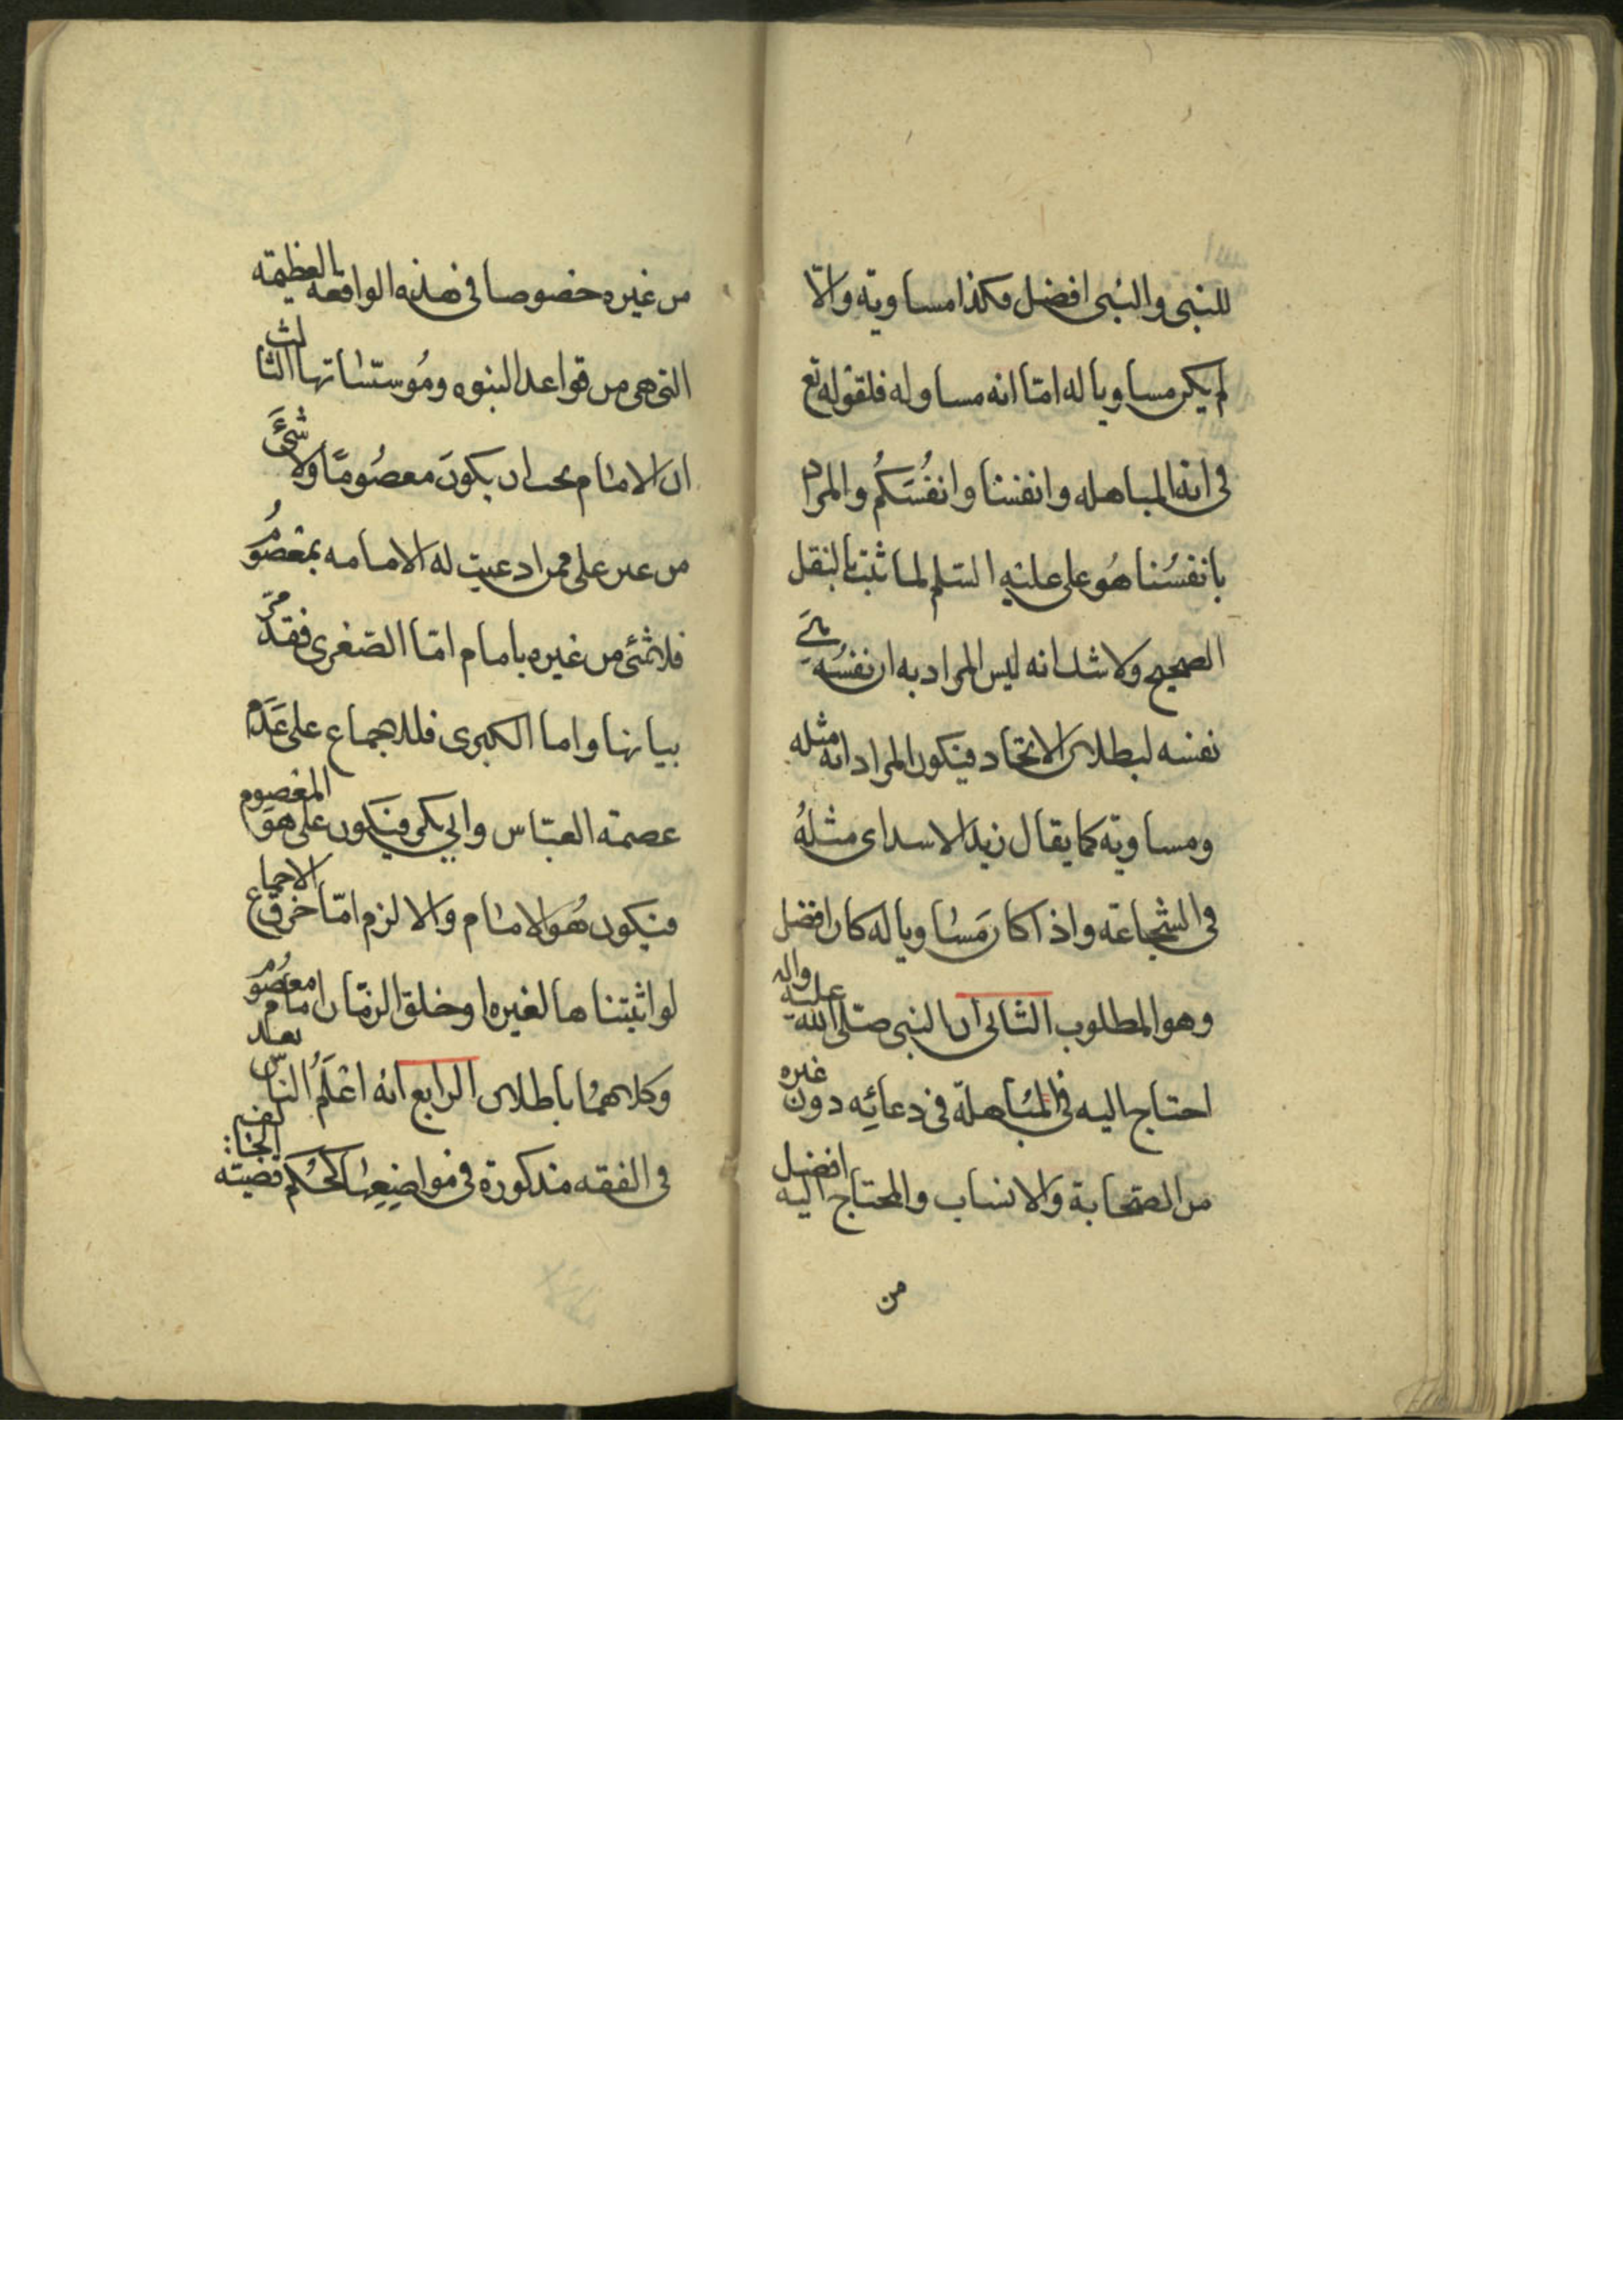 للنبى والنبى افضل فكذا مساويه والا
لم يكن مساويا له امّا انه مساو له فلقوله تع
فى اية المباهله وانفسنا وانفُسَكُم والمراد
بانفسُنا هُو على عليه السّلم لما ثبت بالنقل
الصحيح ولا شك انه ليس المراد به ان نفسُه هى
نفسه لبطلان الاتحاد فيكون المراد انه مثله
ومساويه كما يقال زيد الاسد اى مثلهُ
فى الشجاعة واذا كان مَسَاويا له كان افضل
وهو المطلوب الثانى ان النبى صلّى الله عليه واله
احتاج اليه فى المبَاهلة فى دعائِه دون غيره
من الصّحابة والانساب والمحتاج اليه افضل
من
من غيره خصوصا فى هذه الواقعه العظيمة
التى هى من قواعد النبوه ومُوسسّاتها الثالث
ان الامام يجب ان يكونَ معصُومًا ولا شَىءَ
من غير على ممن ادعيت له الامامه بمعصُوم
فلا شئ من غيره بامام امّا الصّغرى فقد مرّ
بيانها واما الكبرى فللاجماع على عَدَم
عصمة العبّاس وابى بكر فيَكون على هو المعصوم
فيكون هُو الامام والا لزم امّا خرق الاجماع
لو اثبتناها لغيره او خلو الزمّان امام معصُوم
وكلاهمُا باطلان الرابع انه اعْلَمُ الناسّ بعد
فى الفقه مذكورة فى مواضِعِهَا كحُكم قضيّة